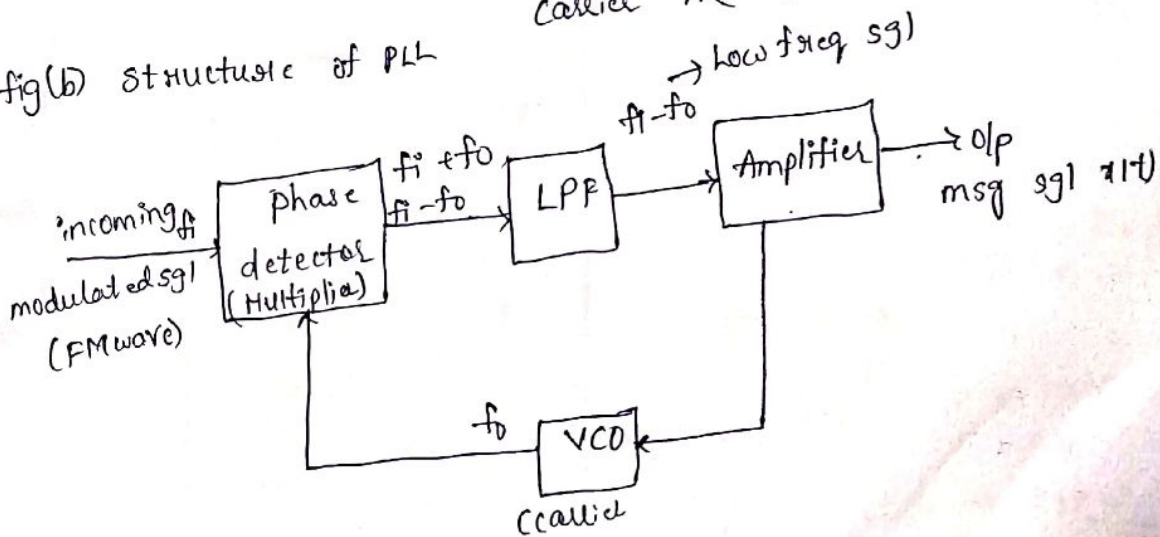 Carrier
fig(b) structure of PLL
→ Low freq sgl
fi-fo
fi +fo
fi-fo
incoming fi
modulated sgl
(FM wave)
phase
detector
(Multiplier)
LPF
Amplifier
o/p
msg sgl x(t)
fo
VCO
(carrier